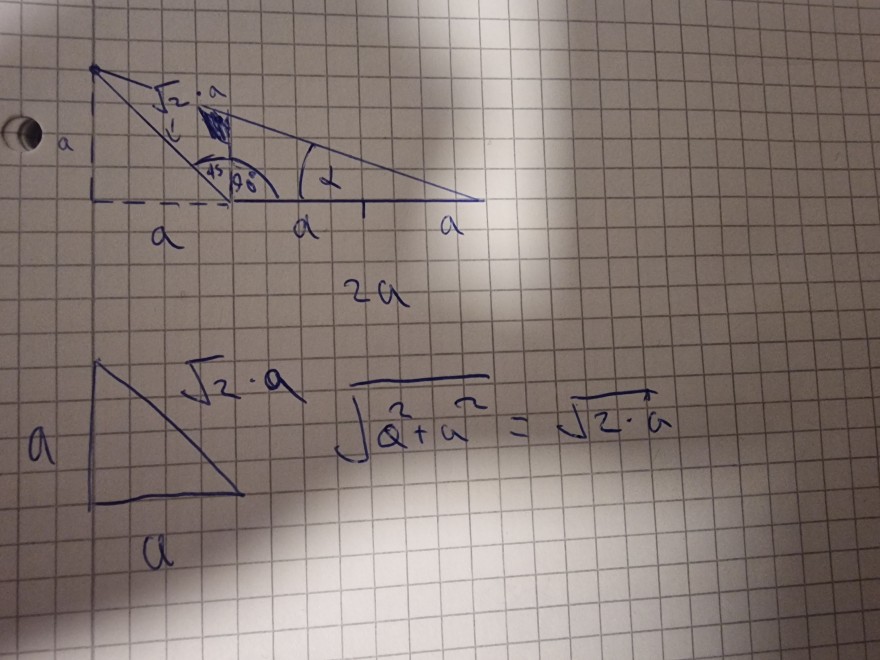 √2 · a
a
45 90°
α
a a a
2a
√2 · a
√a²+a² = √2 · a
a
a